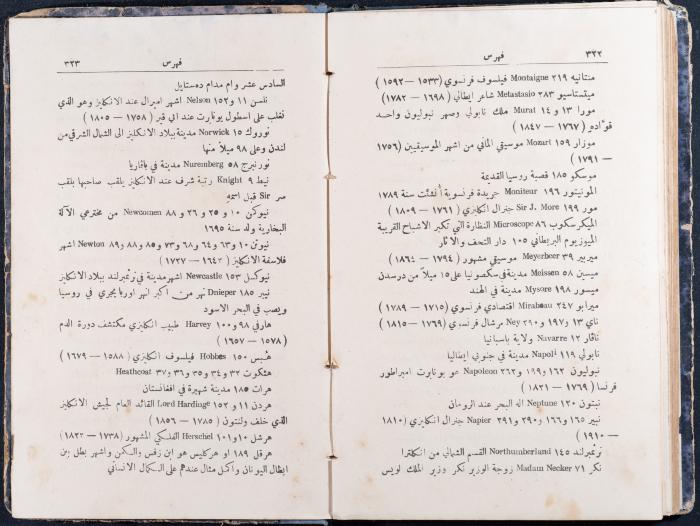 ٣٢٢
فهرس
منتانيه ٢١٩ Montaigne فيلسوف فرنسوي (١٥٣٣ — ١٥٩٢)
ميتستاسيو ٢٨٣ Metastasio شاعر ايطالي (١٦٩٨ — ١٧٨٢)
مورا ١٣ و ١٤ Murat ملك نابولي وصهر نبوليون واحد
قواده (١٧٦٧ — ١٨٤٧)
موزار ١٥٩ Mozart موسيقي الماني من اشهر الموسيقيين (١٧٥٦
— ١٧٩١)
موسكو ١٨٥ قصبة روسيا القديمة
المونيتور ١٩٦ Moniteur جريدة فرنسوية أنشئت سنة ١٧٨٩
مور ١٩٩ Sir J. More جنرال انكليزي (١٧٦١ — ١٨٠٩)
الميكرسكوب ٨٦ Microscope النظارة التي تكبر الاشباح القريبة
الميوزيوم البريطاني ١٠٥ دار التحف والآثار
ميربير ٣٩ Meyerbeer موسيقي مشهور (١٧٩٤ — ١٨٦٤)
ميسين ٥٨ Meissen مدينة في سكسونيا على ١٥ ميلاً من درسدن
ميسور ١٩٨ Mysore مدينة في الهند
ميرابو ٢٤٧ Mirabeau اقتصادي فرنسوي (١٧١٥ — ١٧٨٩)
ناي ١٣ و ١٩٧ و ٢٩٠ Ney مرشال فرنسوي (١٧٦٩ — ١٨١٥)
نافار ١٢ Navarre ولاية باسبانيا
نابولي ١١٩ Napoli مدينة في جنوبي ايطاليا
نبوليون ١٦٢ و ١٩٩ و ٢٦٢ Napoleon هو بونابرت امبراطور
فرنسا (١٧٦٩ — ١٨٢١)
نبتون ١٢٠ Neptune اله البحر عند الرومان
نبير ١٦٥ و ١٦٦ و ٢٩٠ و ٢٩١ Napier جنرال انكليزي (١٨١٠
— ١٩١٠)
نرثمبرلند ١٤٥ Northumberland القسم الشمالي من انكلترا
نكر ٧١ Madam Necker زوجة الوزير نكر وزير الملك لويس
فهرس
٣٢٣
السادس عشر وام مدام ده ستايل
نلسن ١١ و ١٥٢ Nelson اشهر اميرال عند الانكليز وهو الذي
تغلب على اسطول بونابرت عند ابي قير (١٧٥٨ — ١٨٠٥)
نوروك ١٥ Norwick مدينة ببلاد الانكليز الى الشمال الشرقي من
لندن وعلى ٩٨ ميلاً منها
نورنبرج ٥٨ Nuremberg مدينة في بافاريا
نيط ٩ Knight رتبة شرف عند الانكليز يلقب صاحبها بلقب
سر Sir قبل اسمهِ
نيوكن ١٠ و ٢٥ و ٢٦ و ٨٨ Newcomen من مخترعي الآلة
البخارية ولد سنة ١٦٩٥
نيوتن ١٠ و ٦٣ و ٦٤ و ٦٨ و ٧٣ و ٨٥ و ٨٨ و ٨٩ Newton اشهر
فلاسفة الانكليز (١٦٤٢ — ١٧٢٧)
نيوكسل ١٥٣ Newcastle اشهر مدينة في نرثمبرلند ببلاد الانكليز
نيبر ١٨٥ Dnieper نهر من اكبر انهر اوربا يجري في روسيا
ويصب في البحر الاسود
هارفي ٩٨ و ١٠٠ Harvey طبيب انكليزي مكتشف دورة الدم
(١٥٧٨ — ١٦٥٧)
هُبس ١٥٠ Hobbes فيلسوف انكليزي (١٥٨٨ — ١٦٧٩)
هثكوت ٣٢ و ٣٤ و ٣٥ و ٣٦ و ٣٧ Heathcoat
هرات ١٨٥ مدينة شهيرة في افغانستان
هردن ١١ و ١٥٢ Lord Hardinge القائد العام لجيش الانكليز
الذي خلف ولنتون (١٧٨٥ — ١٨٥٦)
هرشل ١٠ و ١٠١ Herschel الفلكي المشهور (١٧٣٨ — ١٨٢٢)
هرقل ١٨٩ او هركليس هو ابن زفس والكمن واشهر بطل بين
ابطال اليونان واكمل مثال عندهم على الكمال الانساني